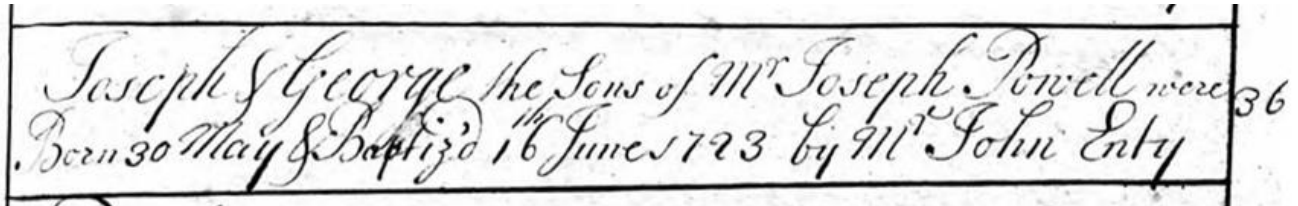 Joseph & George the Sons of Mr Joseph Powell were 36
Born 30 May & Baptiz'd 16th June 1723 by Mr John Enty